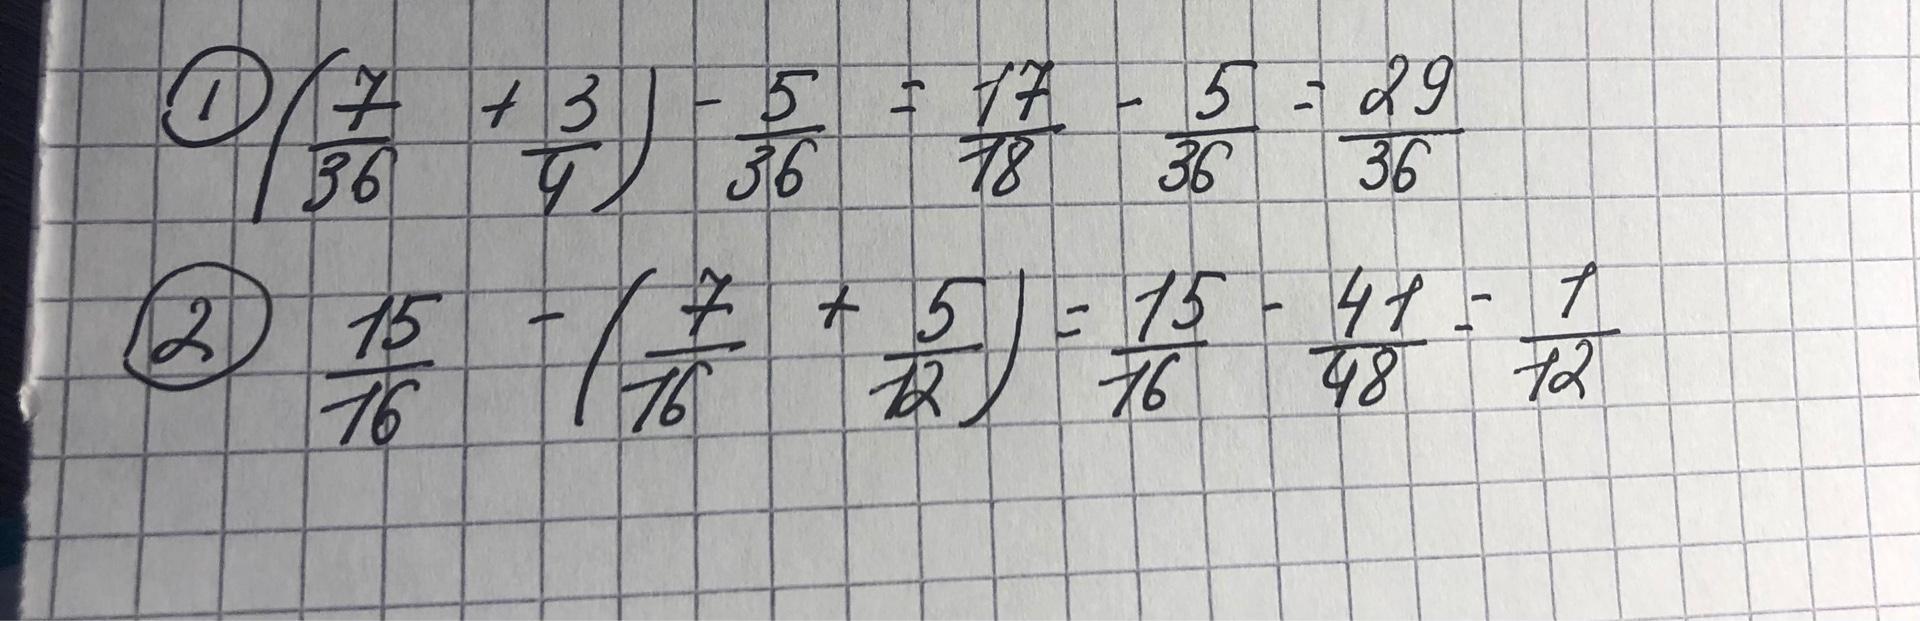 ① (7/36 + 3/4) - 5/36 = 17/18 - 5/36 = 29/36
② 15/16 - (7/16 + 5/12) = 15/16 - 41/48 = 1/12